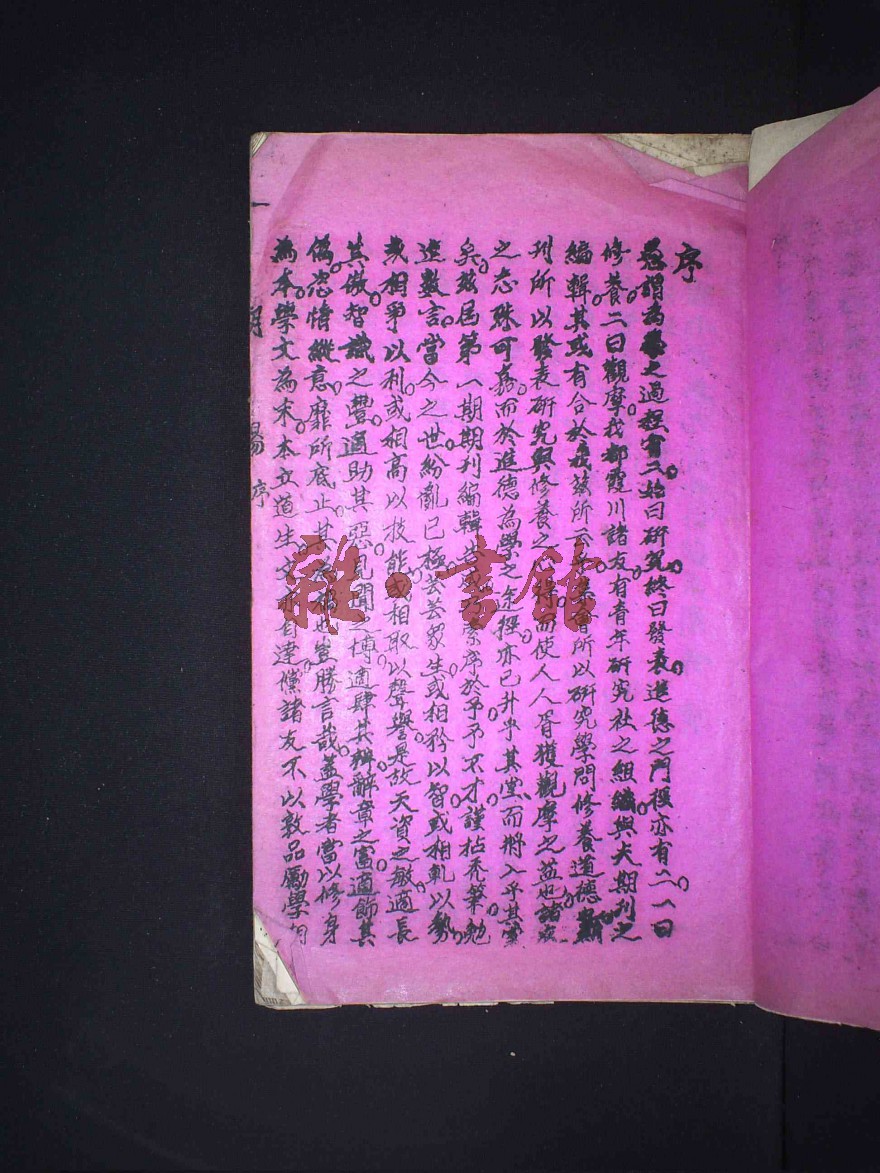 序
愚謂為學之過程有二始曰研究終曰發表進德之門徑亦有二一曰
修養二曰觀摩我都霞川諸友有青年研究社之組織與夫期刊之
編輯其或有合於我茲所云乎集會所以研究學問修養道德期
刊所以發表研究與修養之心得而使人人胥獲觀摩之益也諸友
之志殊可嘉而於進德為學之途徑亦已升乎其堂而將入乎其室
矣茲屆第一期期刊編輯告成索序於予予不才謹拈禿筆勉
進數言當今之世紛亂已極芸芸眾生或相矜以智或相軋以勢
或相爭以利或相高以技能或相取以聲譽是故天資之敏適長
其傲智識之豐適助其惡見聞之博適肆其辨辭章之富適飾其
偽恣情縱意靡所底止其為禍也豈勝言哉蓋學者當以修身
為本學文為末本立道生文亦有達儻諸友不以敦品勵學相
一
楊序
雜·書館